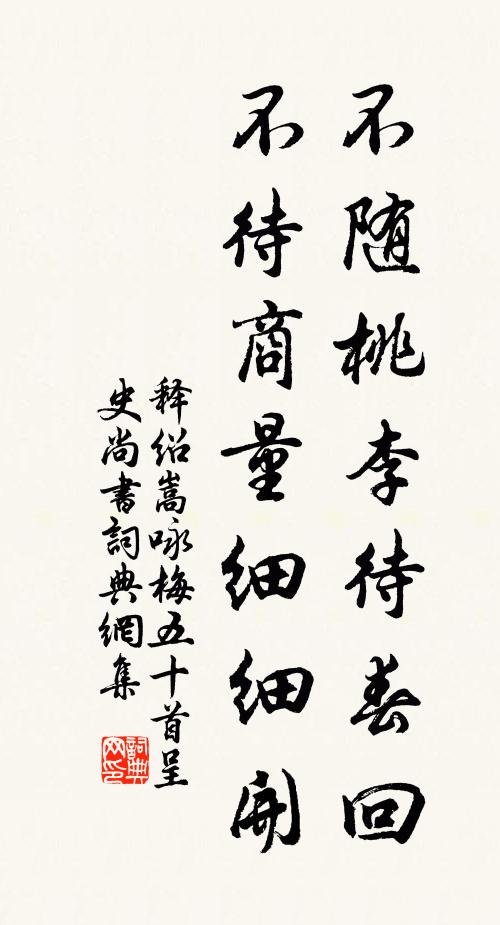 不随桃李待春回
不待商量细细開
释绍嵩咏梅五十首呈
史尚書詞典網集
詞典网印